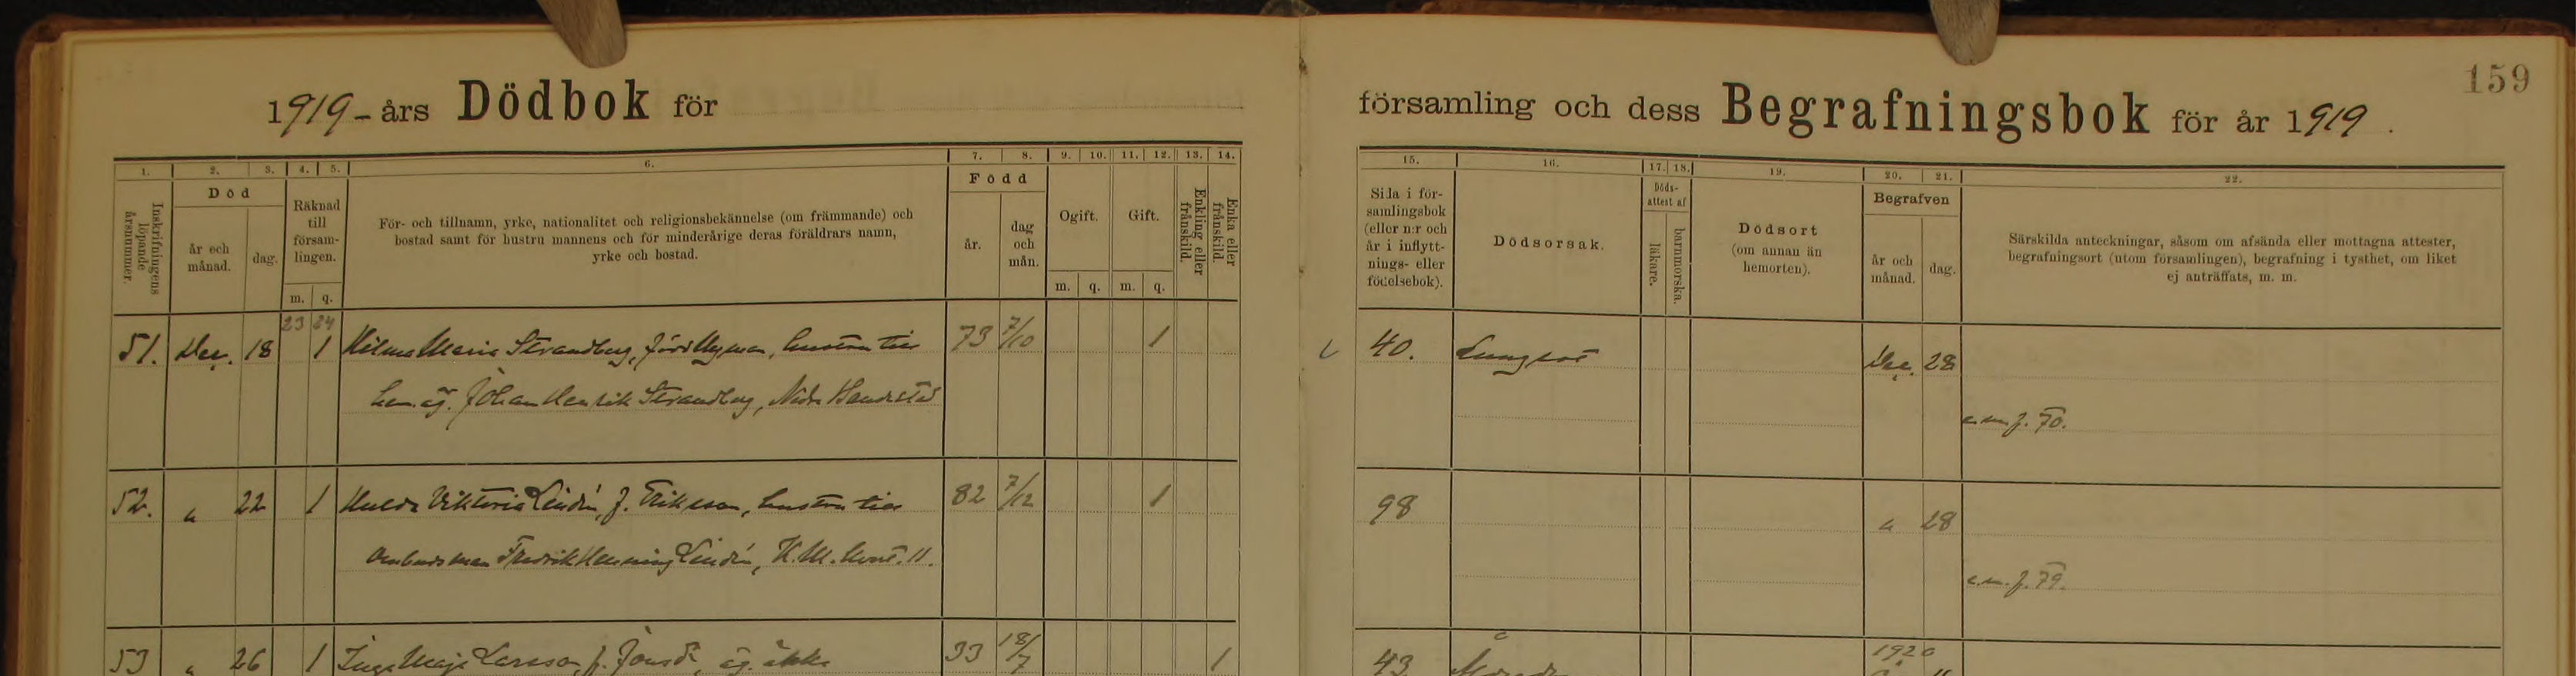 159
1919 - års Dödbok för
församling och dess Begrafningsbok för år 1919.
1. 2. 3. 4. 5. 6. 7. 8. 9. 10. 11. 12. 13. 14.
Inskrifningens löpande årsnummer.
Död
år och månad.
dag.
Räknad till försam-lingen.
m. q.
För- och tillnamn, yrke, nationalitet och religionsbekännelse (om främmande) och
bostad samt för hustru mannens och för minderårige deras föräldrars namn,
yrke och bostad.
Född
år.
dag och mån.
Ogift.
m. q.
Gift.
m. q.
Enkling eller frånskild.
Enka eller frånskild.
15. 16. 17. 18. 19. 20. 21. 22.
Sida i för-
samlingsbok
(eller n:r och
år i inflytt-
nings- eller
födelsebok).
Dödsorsak.
Döds-
attest af
läkare.
barnmorska.
Dödsort
(om annan än
hemorten).
Begrafven
år och månad.
dag.
Särskilda anteckningar, såsom om afsända eller mottagna attester,
begrafningsort (utom församlingen), begrafning i tysthet, om liket
ej anträffats, m. m.
23 24
51. Dec. 18 1 Hilma Maria Strandberg, född Nyman, hustru till 73 7/10 1
hem.äg. Johan Henrik Strandberg, Nedre
40. Lungsot Dec. 28
e.m.f. 70.
52. " 22 1 Hulda Viktoria Lindén, f. Eriksson, hustru till 82 7/12 1
ombudsman Fredrik Henning Lindén, 11.
98 " 28
e.m.f. 79.
53 " 26 1 Inga Maja Larsson, f. 33 18/7 1
43 1920